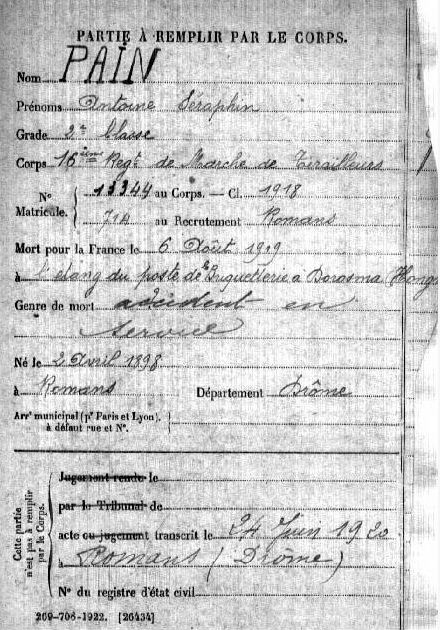 PARTIE À REMPLIR PAR LE CORPS.
Nom PAÏN
Prénoms Antoine Séraphin
Grade 2e classe
Corps 16ème Regt de Marche de Tirailleurs
No 13344 au Corps. — Cl. 1918
Matricule. 714 au Recrutement Romans
Mort pour la France le 6 Août 1919
à l'étang du poste de la Briquetterie a Dorosma Hongr
Genre de mort accident en
service
Né le 2 Avril 1898
à Romans Département Drôme
Arrt municipal (pr Paris et Lyon),
à défaut rue et No.
Cette partie
n'est pas à remplir
par le Corps.
Jugement rendu le
par le Tribunal de
acte ou jugement transcrit le 24 Juin 1920
à Romans (Drôme)
No du registre d'état civil
269-708-1922. [26434]